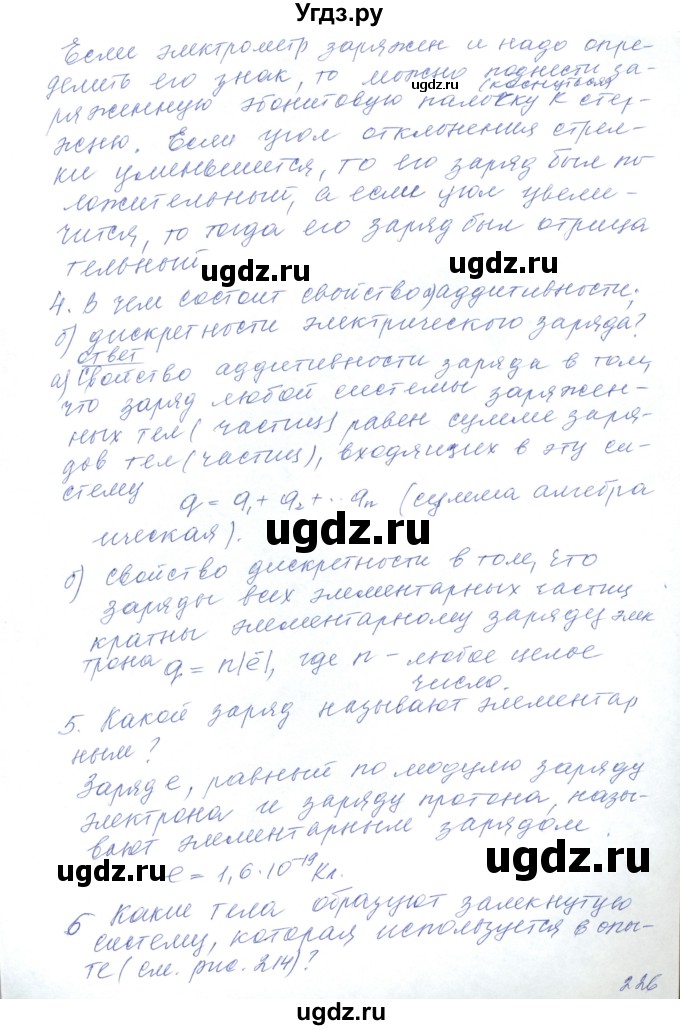 Угдз.ру
Если электрометр заряжен и надо опре-
делить его знак, то можно поднести за-
(коснуться)
ряженную эбонитовую палочку к стер-
жню. Если угол отклонения стрел-
ки уменьшится, то его заряд был по
ложительный, а если угол увели-
чится, то тогда его заряд был отрица
тельный
ugdz.ru ugdz.ru
4. В чем состоит свойство а) аддитивности;
б) дискретности электрического заряда?
ответ
а) Свойство аддитивности заряда в том,
что заряд любой системы заряжен-
ных тел (частиц) равен сумме заря-
дов тел (частиц), входящих в эту си-
стему q = q₁ + q₂ + ... qₙ (сумма алгебра
ическая).
ugdz.ru
б) свойство дискретности в том, что
заряды всех элементарных частиц
кратны элементарному заряду элек
трона q = n|ē|, где n - любое целое
число.
ugdz.ru ugdz.ru
5. Какой заряд называют элементар
ным?
Заряд е, равный по модулю заряду
электрона и заряду протона, назы-
вают элементарным зарядом.
ugdz.ru e = 1,6·10⁻¹⁹ Кл. ugdz.ru
6 Какие тела образуют замкнутую
систему, которая используется в опы-
те (см. рис. 214)?
226
ugdz.ru